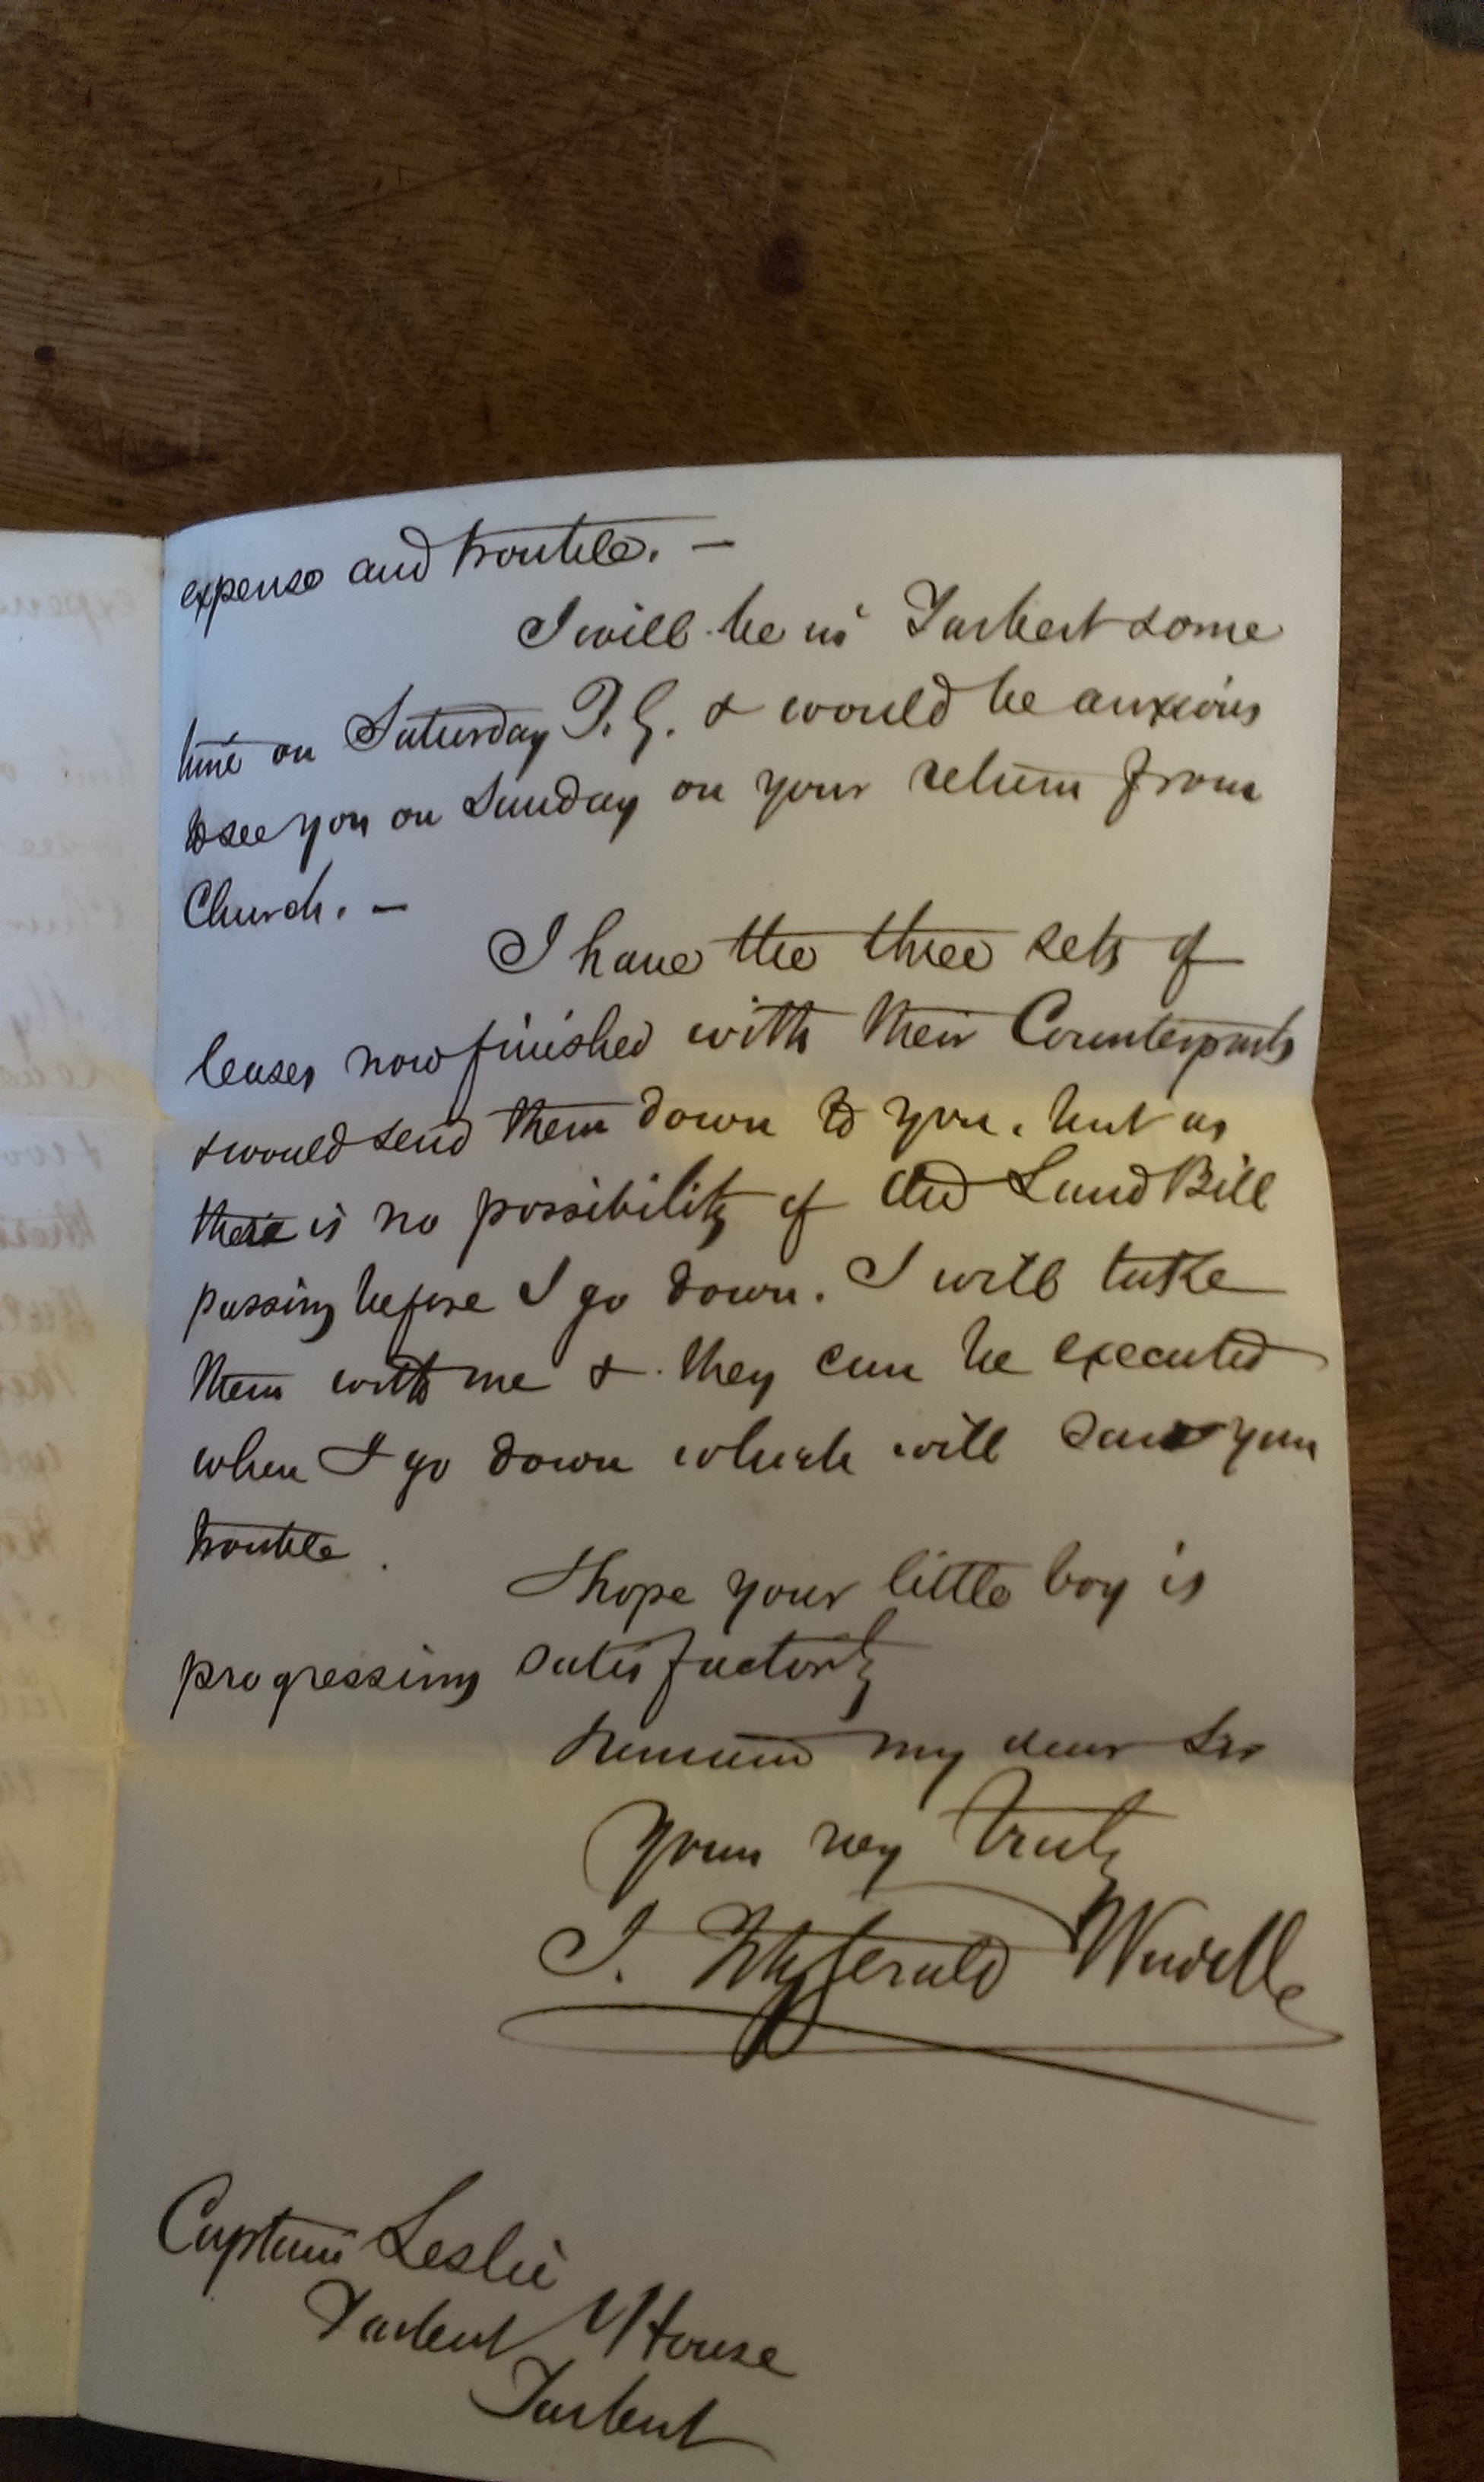 expense and trouble. —
I will be in Tarbert some
time on Saturday P.G. & would be anxious
to see you on Sunday on your return from
Church. —
I have the three sets of
leases now finished with their Counterparts
& would send them down to you. but as
there is no possibility of the Land Bill
passing before I go down. I will take
them with me & they can be executed
when I go down which will save you
trouble.
I hope your little boy is
progressing satisfactorily
Remain my dear Sir
Yours very truly
J. Fitzgerald
Captain Leslie
Tarbert House
Tarbert